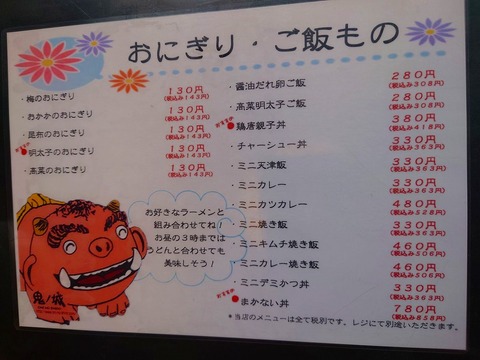 おにぎり・ご飯もの
・梅のおにぎり 130円
(税込み143円)
・おかかのおにぎり 130円
(税込み143円)
・昆布のおにぎり 130円
(税込み143円)
おすすめ
・明太子のおにぎり 130円
(税込み143円)
・高菜のおにぎり 130円
(税込み143円)
・醤油だれ卵ご飯 280円
(税込み308円)
・高菜明太子ご飯 280円
(税込み308円)
おすすめ
・鶏唐親子丼 380円
(税込み418円)
・チャーシュー丼 330円
(税込み363円)
・ミニ天津飯 330円
(税込み363円)
・ミニカレー 330円
(税込み363円)
・ミニカツカレー 480円
(税込み528円)
・ミニ焼き飯 330円
(税込み363円)
・ミニキムチ焼き飯 460円
(税込み506円)
・ミニカレー焼き飯 460円
(税込み506円)
・ミニデミかつ丼 330円
(税込み363円)
おすすめ
・まかない丼 780円
(税込み858円)
お好きなラーメンと
組み合わせてね!
お昼の3時までは
うどんと合わせても
美味しそう!
鬼ノ城
*当店のメニューは全て税別です。レジにて別途いただきます。